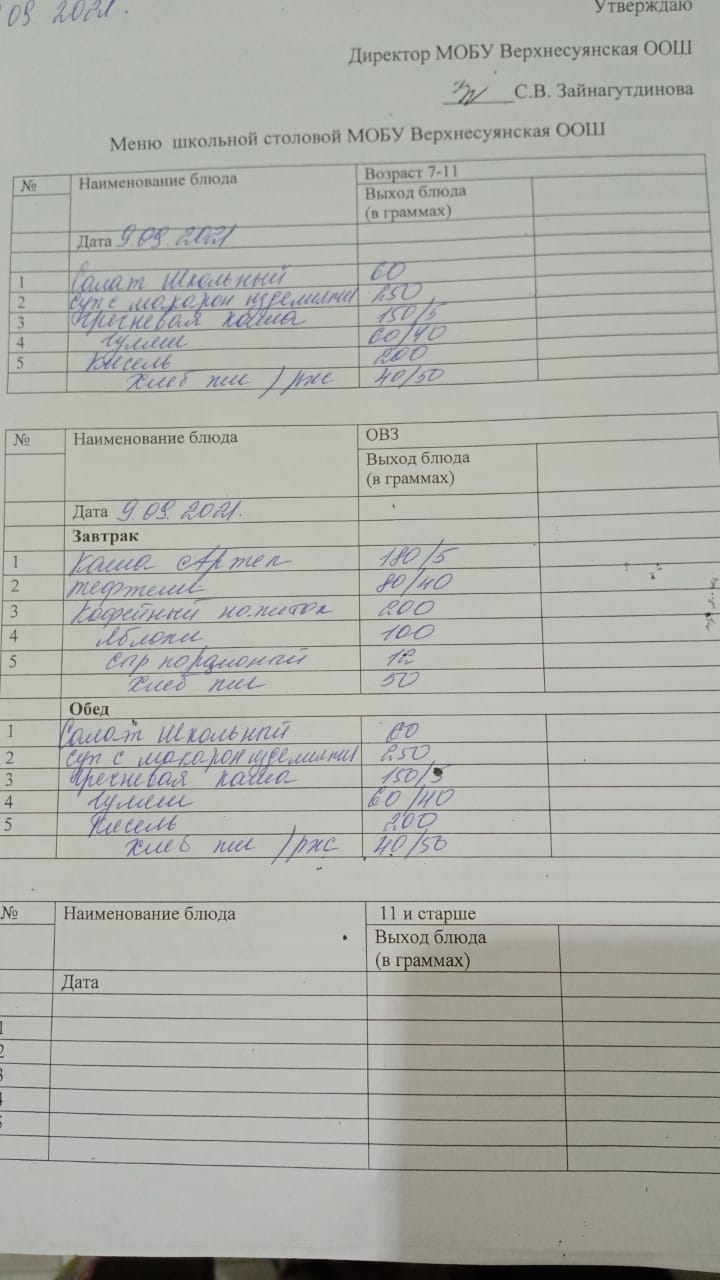 09 2021.
Утверждаю
Директор МОБУ Верхнесуянская ООШ
С.В. Зайнагутдинова
Меню школьной столовой МОБУ Верхнесуянская ООШ
№ Наименование блюда Возраст 7-11
Выход блюда
(в граммах)
Дата 9.09.2021
1 Салат Школьный 60
2 Суп с макарон изделиями 250
3 Гречневая каша 150/5
4 Гуляш 60/40
5 Кисель 200
Хлеб пш / рж 40/50
№ Наименование блюда ОВЗ
Выход блюда
(в граммах)
Дата 9.09.2021.
Завтрак
1 Каша Артек 180/5
2 тефтели 80/40
3 Кофейный напиток 200
4 Яблоки 100
5 Сыр порционый 12
Хлеб пш 50
Обед
1 Салат Школьный 60
2 Суп с макарон изделиями 250
3 Гречневая каша 150/5
4 Гуляш 60/40
5 Кисель 200
Хлеб пш / рж 40/50
№ Наименование блюда 11 и старше
Выход блюда
(в граммах)
Дата
1
2
3
4
5